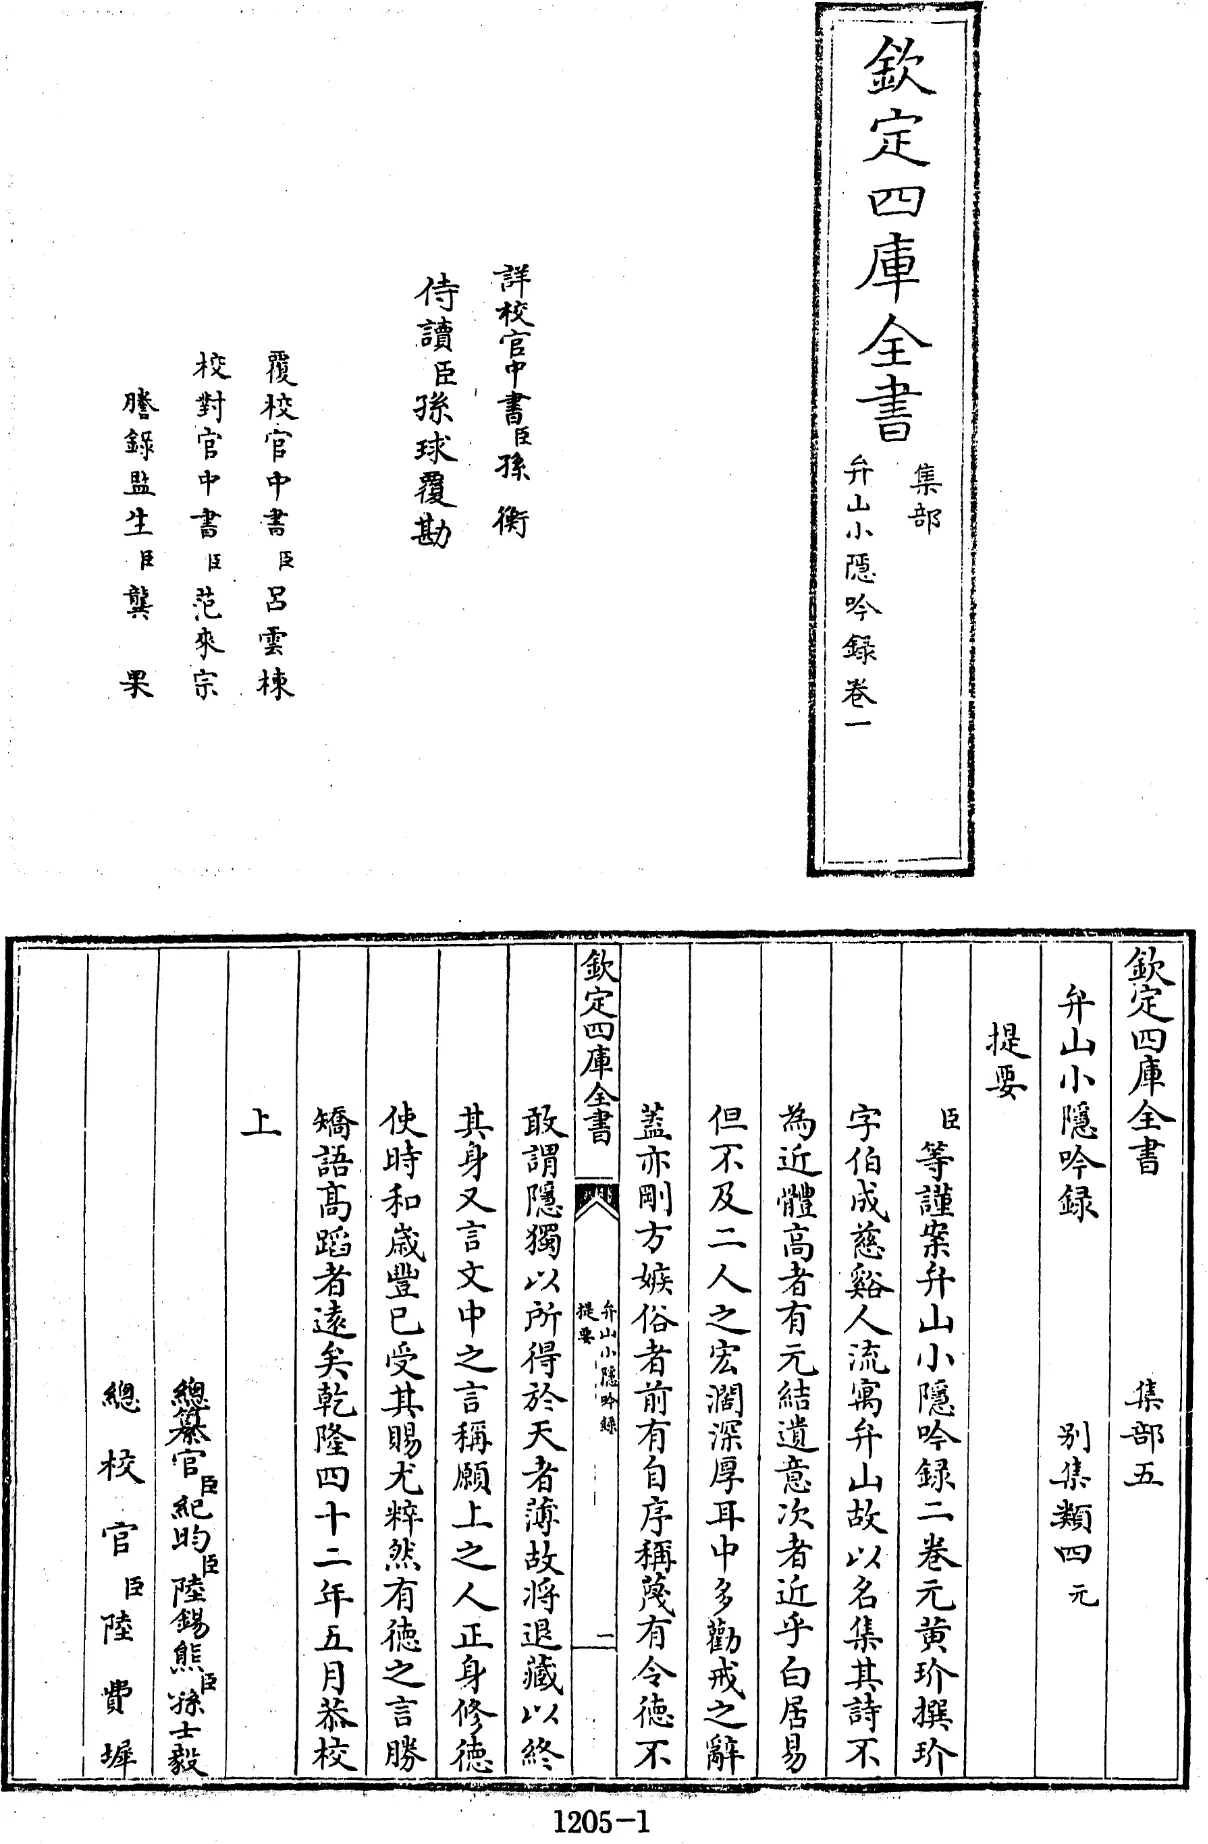 欽定四庫全書
集部
弁山小隱吟録卷一
詳校官中書臣孫衡
侍讀臣孫球覆勘
覆校官中書臣呂雲棟
校對官中書臣范來宗
謄錄監生臣龔果
欽定四庫全書 集部五
弁山小隱吟録 別集類四元
提要
臣等謹案弁山小隱吟録二卷元黃玠撰玠
字伯成慈谿人流寓弁山故以名集其詩不
為近體高者有元結遺意次者近乎白居易
但不及二人之宏濶深厚耳中多勸戒之辭
蓋亦剛方嫉俗者前有自序稱薎有令德不
欽定四庫全書
弁山小隱吟録
提要
一
敢謂隱獨以所得於天者薄故將退藏以終
其身又言文中之言稱願上之人正身修德
使時和歲豐已受其賜尤粹然有德之言勝
矯語高蹈者遠矣乾隆四十二年五月恭校
上
總纂官臣紀昀臣陸錫熊臣孫士毅
總校官臣陸費墀
1205-1